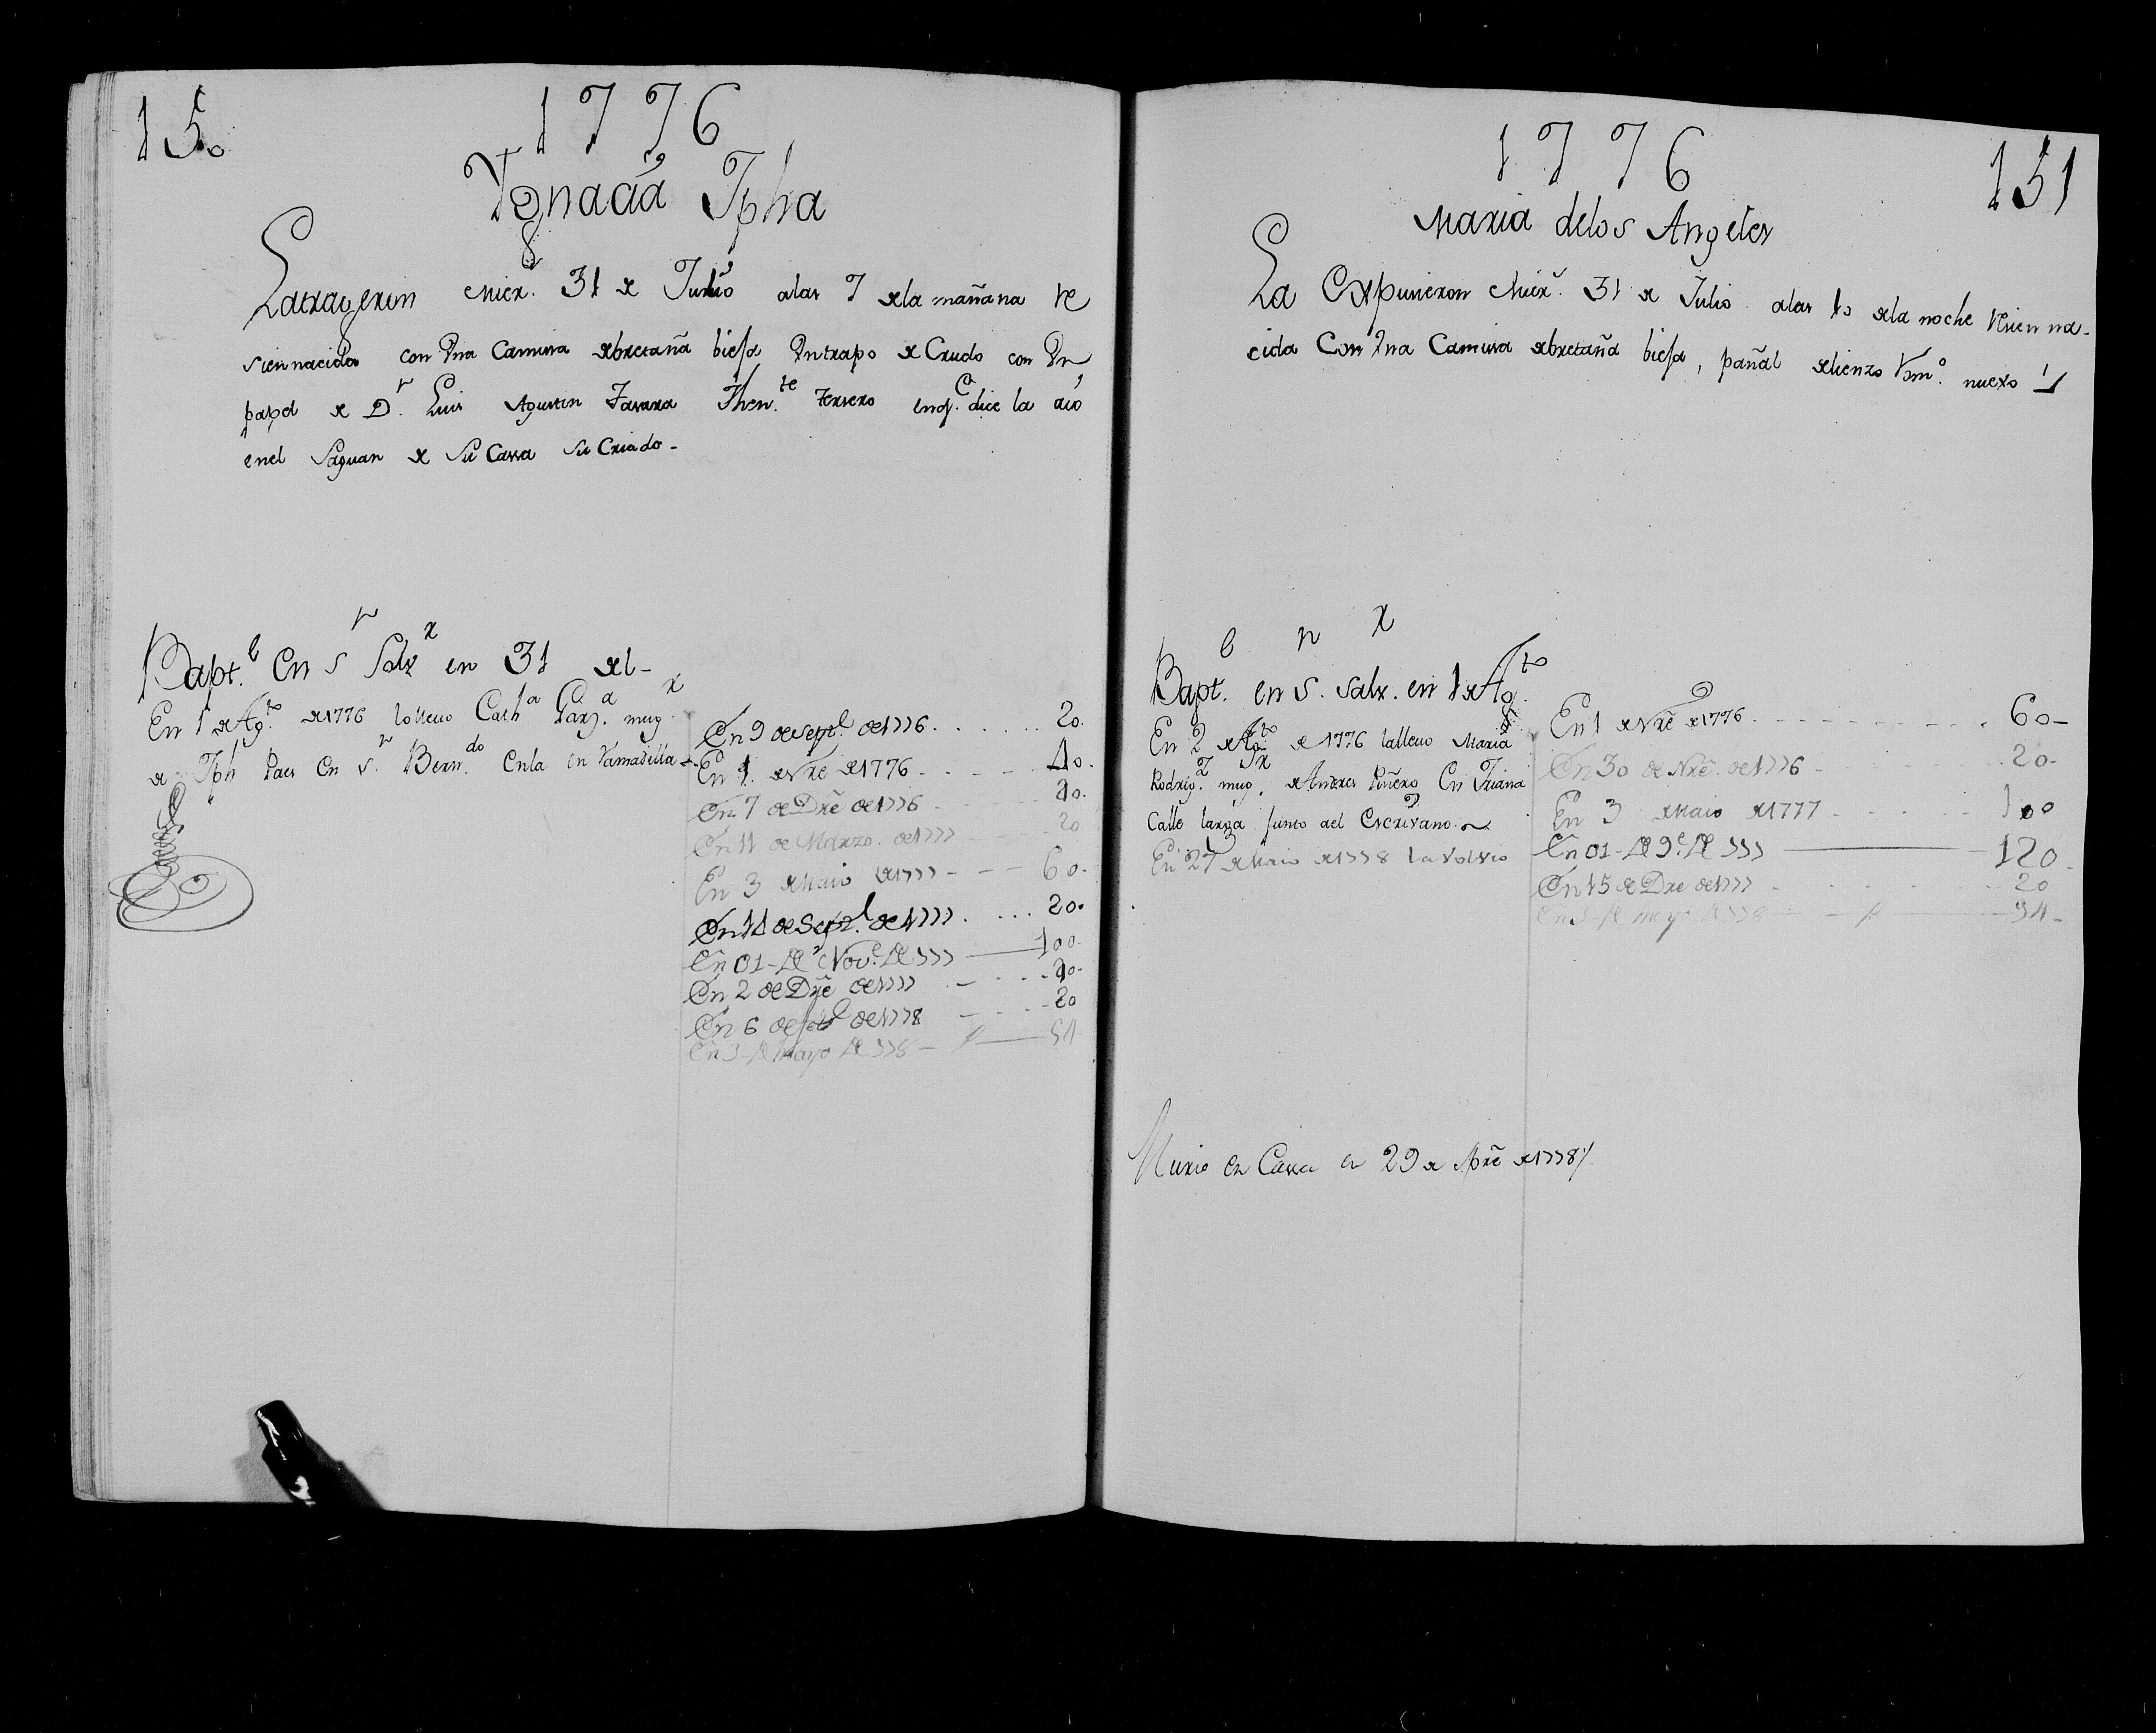 150
1776
Ygnacia Jpha
Latrageron Mier. 31 de Julio alas 7 dela mañana re
siennacida con Una Camisa debretaña biesa Un trapo de Crudo con Un
papel de Dr. Luis Agustin Tavara Then.te Tersero enq.e dice la dio
enel Saguan de Su Cassa Su Criado-
Bapt. En Sr Salv.r en 31 del-
En 1 de Ag.to de 1776 Cath.a mug.r
de Jph Paes En S.r Bern.do Enla
En 9 de Sept.e de 1776 . . . . . . 20.
En 1. de Nre de 1776 . . . . 40.
En 7 de Dre de 1776
En 11 de Marzo. de 1777 20
En 3 de Maio de 1777 - - - 60-
En 11 de Sept.e de 1777 . . . . 20.
En 01- de Nov.e de 777 100-
En 2 de Dre de 1777
En 6 de feb.o de 1778 - - - 20
En 3- de Mayo de 778
1776
151
Maria delos Angeles
La Expusieron Mier. 31 de Julio alas 10 dela noche resien na-
cida Con Una Camisa debretaña biesa, pañal delienzo nuevo
Bapt. en S.r Salv.r en 1 de Ag.to
En 2 de Ag.to de 1776 la lleuo Maria
Rodrig.z mug.r de Andres Piñero En Triana
Calle larga junto ael Escrivano
En 27 de Maio de 1778 la Volvio
En 1 de Nre de 1776 - - - - - 60-
En 30 de Nre. de 1776 - - - 20-
En 3 de Maio de 1777 - - - 100
En 01- de 9.e de 777 120
En 15 de Dre de 1777 - - - 20
En 3- de Mayo de 778
Murio en Cassa en 29 de de 1778